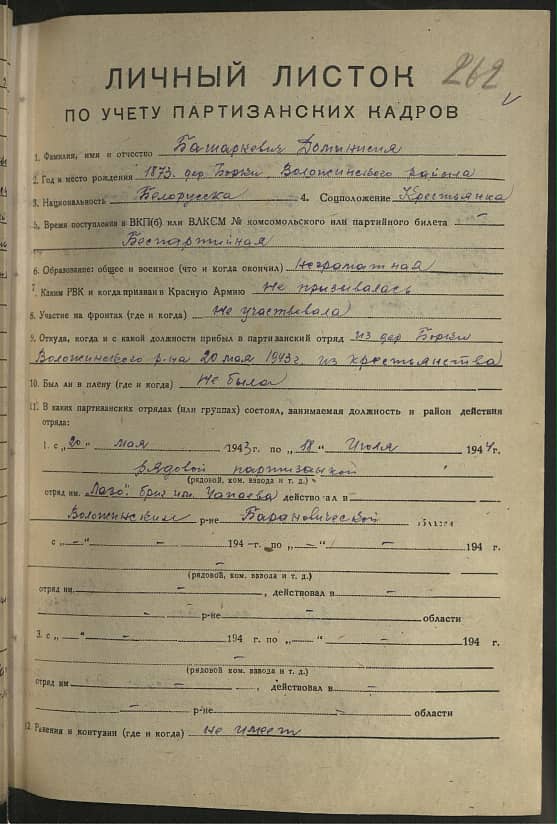 262
ЛИЧНЫЙ ЛИСТОК
ПО УЧЕТУ ПАРТИЗАНСКИХ КАДРОВ
1. Фамилия, имя и отчество Башаркевич Доминисия
2. Год и место рождения 1873. дер. Борки, Воложинского района
3. Национальность Белорусска 4. Соцположение Крестьянка
5. Время поступления в ВКП(б) или ВЛКСМ № комсомольского или партийного билета —
Беспартийная
6. Образование: общее и военное (что и когда окончил) Неграматная
7. Каким РВК и когда призван в Красную Армию Не призывалась
8. Участие на фронтах (где и когда) Не участвовала
9. Откуда, когда и с какой должности прибыл в партизанский отряд из дер Борки
Воложинского р-на 20 мая 1943 г. из крестьянства
10. Был ли в плену (где и когда) Не была
11. В каких партизанских отрядах (или группах) состоял, занимаемая должность и район действия
отряда:
1. с „20" мая 1943 г. по „18" Июля 1944 г.
рядовой партизанкой
(рядовой, ком. взвода и т. д.)
отряд им. „Лазо". бриг им. Чапаева действовал в
Воложинским р-не Барановической области
с „—" — 194 — г. по „—" — 194 г.
(рядовой, ком. взвода и т. д.)
отряд им. —, действовал в —
— р-не — области
3. с „—" — 194 г. по „—" — 194 г.
(рядовой, ком. взвода и т. д.)
отряд им —, действовал в —
— р-не — области
12. Ранения и контузии (где и когда) не имеет